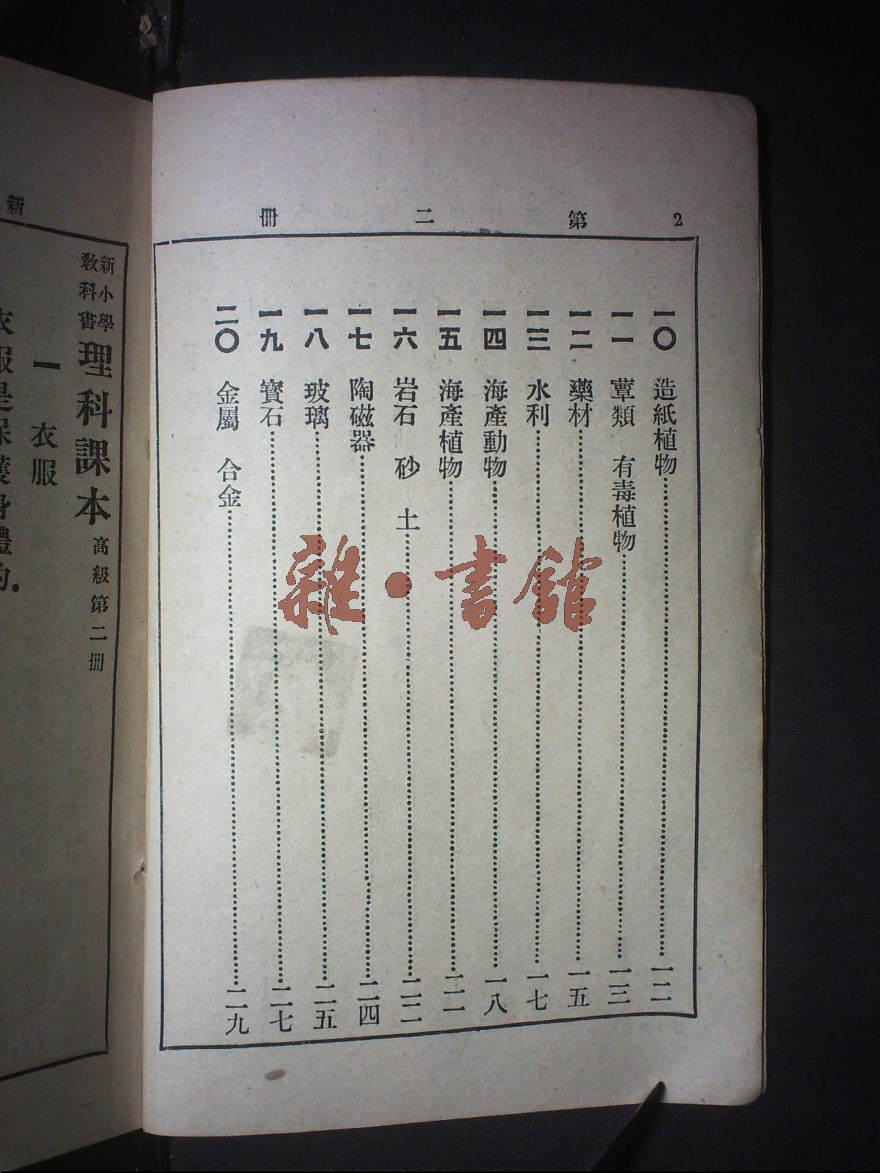 2 第二冊
一〇 造紙植物……一二
一一 蕈類 有毒植物……一三
一二 藥材……一五
一三 水利……一七
一四 海產動物……一八
一五 海產植物……二一
一六 岩石 砂 土……二二
一七 陶磁器……二四
一八 玻璃……二五
一九 寶石……二七
二〇 金屬 合金……二九
雜·書館
新
新小學
教科書
理科課本 高級第二冊
一 衣服
衣服是保護身體的.